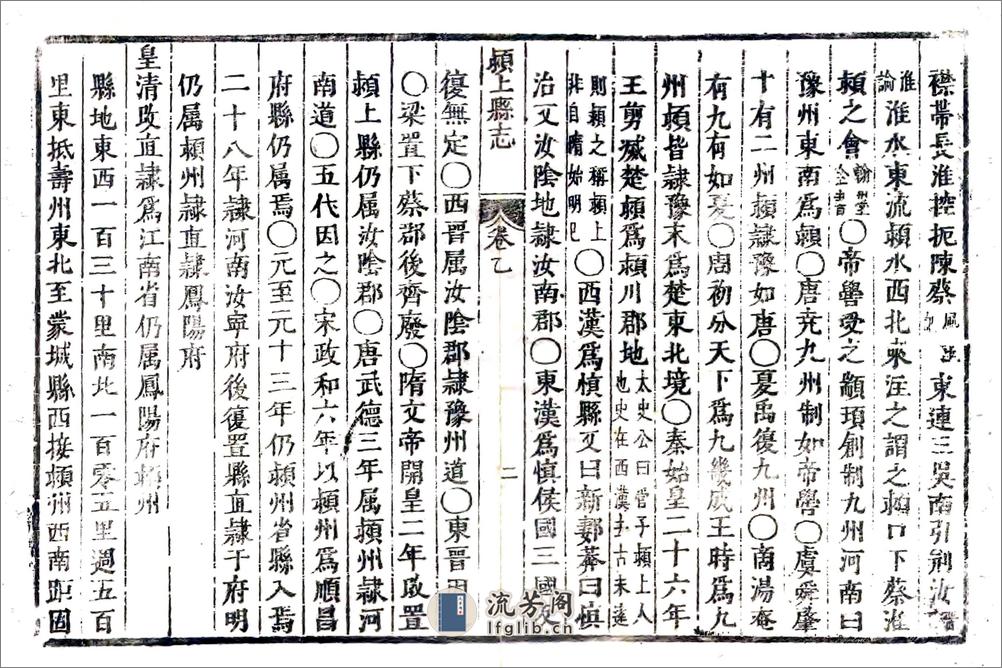 襟帶長淮控扼陳蔡風土記東連三吳南引荆汝晋
淮論淮水東流頴水西北來注之謂之頴口下蔡淮
頴之會翰墨全書〇帝嚳受之顓頊創制九州河南曰
豫州東南爲頴〇唐堯九州制如帝嚳〇虞舜肇
十有二州頴隸豫如唐〇夏禹復九州〇商湯奄
有九有如夏〇周初分天下爲九畿成王時爲九
州頴皆隸豫末爲楚東北境〇秦始皇二十六年
王剪滅楚頴爲頴川郡地太史公曰管子頴上人也史在西漢去古未遠
則頴之稱頴上非自隋始明已〇西漢爲慎縣又曰新鄟莽曰慎
治又汝陰地隸汝南郡〇東漢爲慎侯國三國
頴上縣志
卷乙
二
復無定〇西晋属汝陰郡隸豫州道〇東晋因
〇梁置下蔡郡後齊廢〇隋文帝開皇二年改置
頴上縣仍属汝陰郡〇唐武德三年属頴州隸河
南道〇五代因之〇宋政和六年以頴州爲順昌
府縣仍属焉〇元至元十三年仍頴州省縣入焉
二十八年隸河南汝寧府後復置縣直隸于府明
仍属頴州隸直隸鳳陽府
皇清改直隸爲江南省仍属鳳陽府頴州
縣地東西一百三十里南北一百零五里週五百
里東抵壽州東北至蒙城縣西接頴州西南距固
流芳阁
lfglib.cn